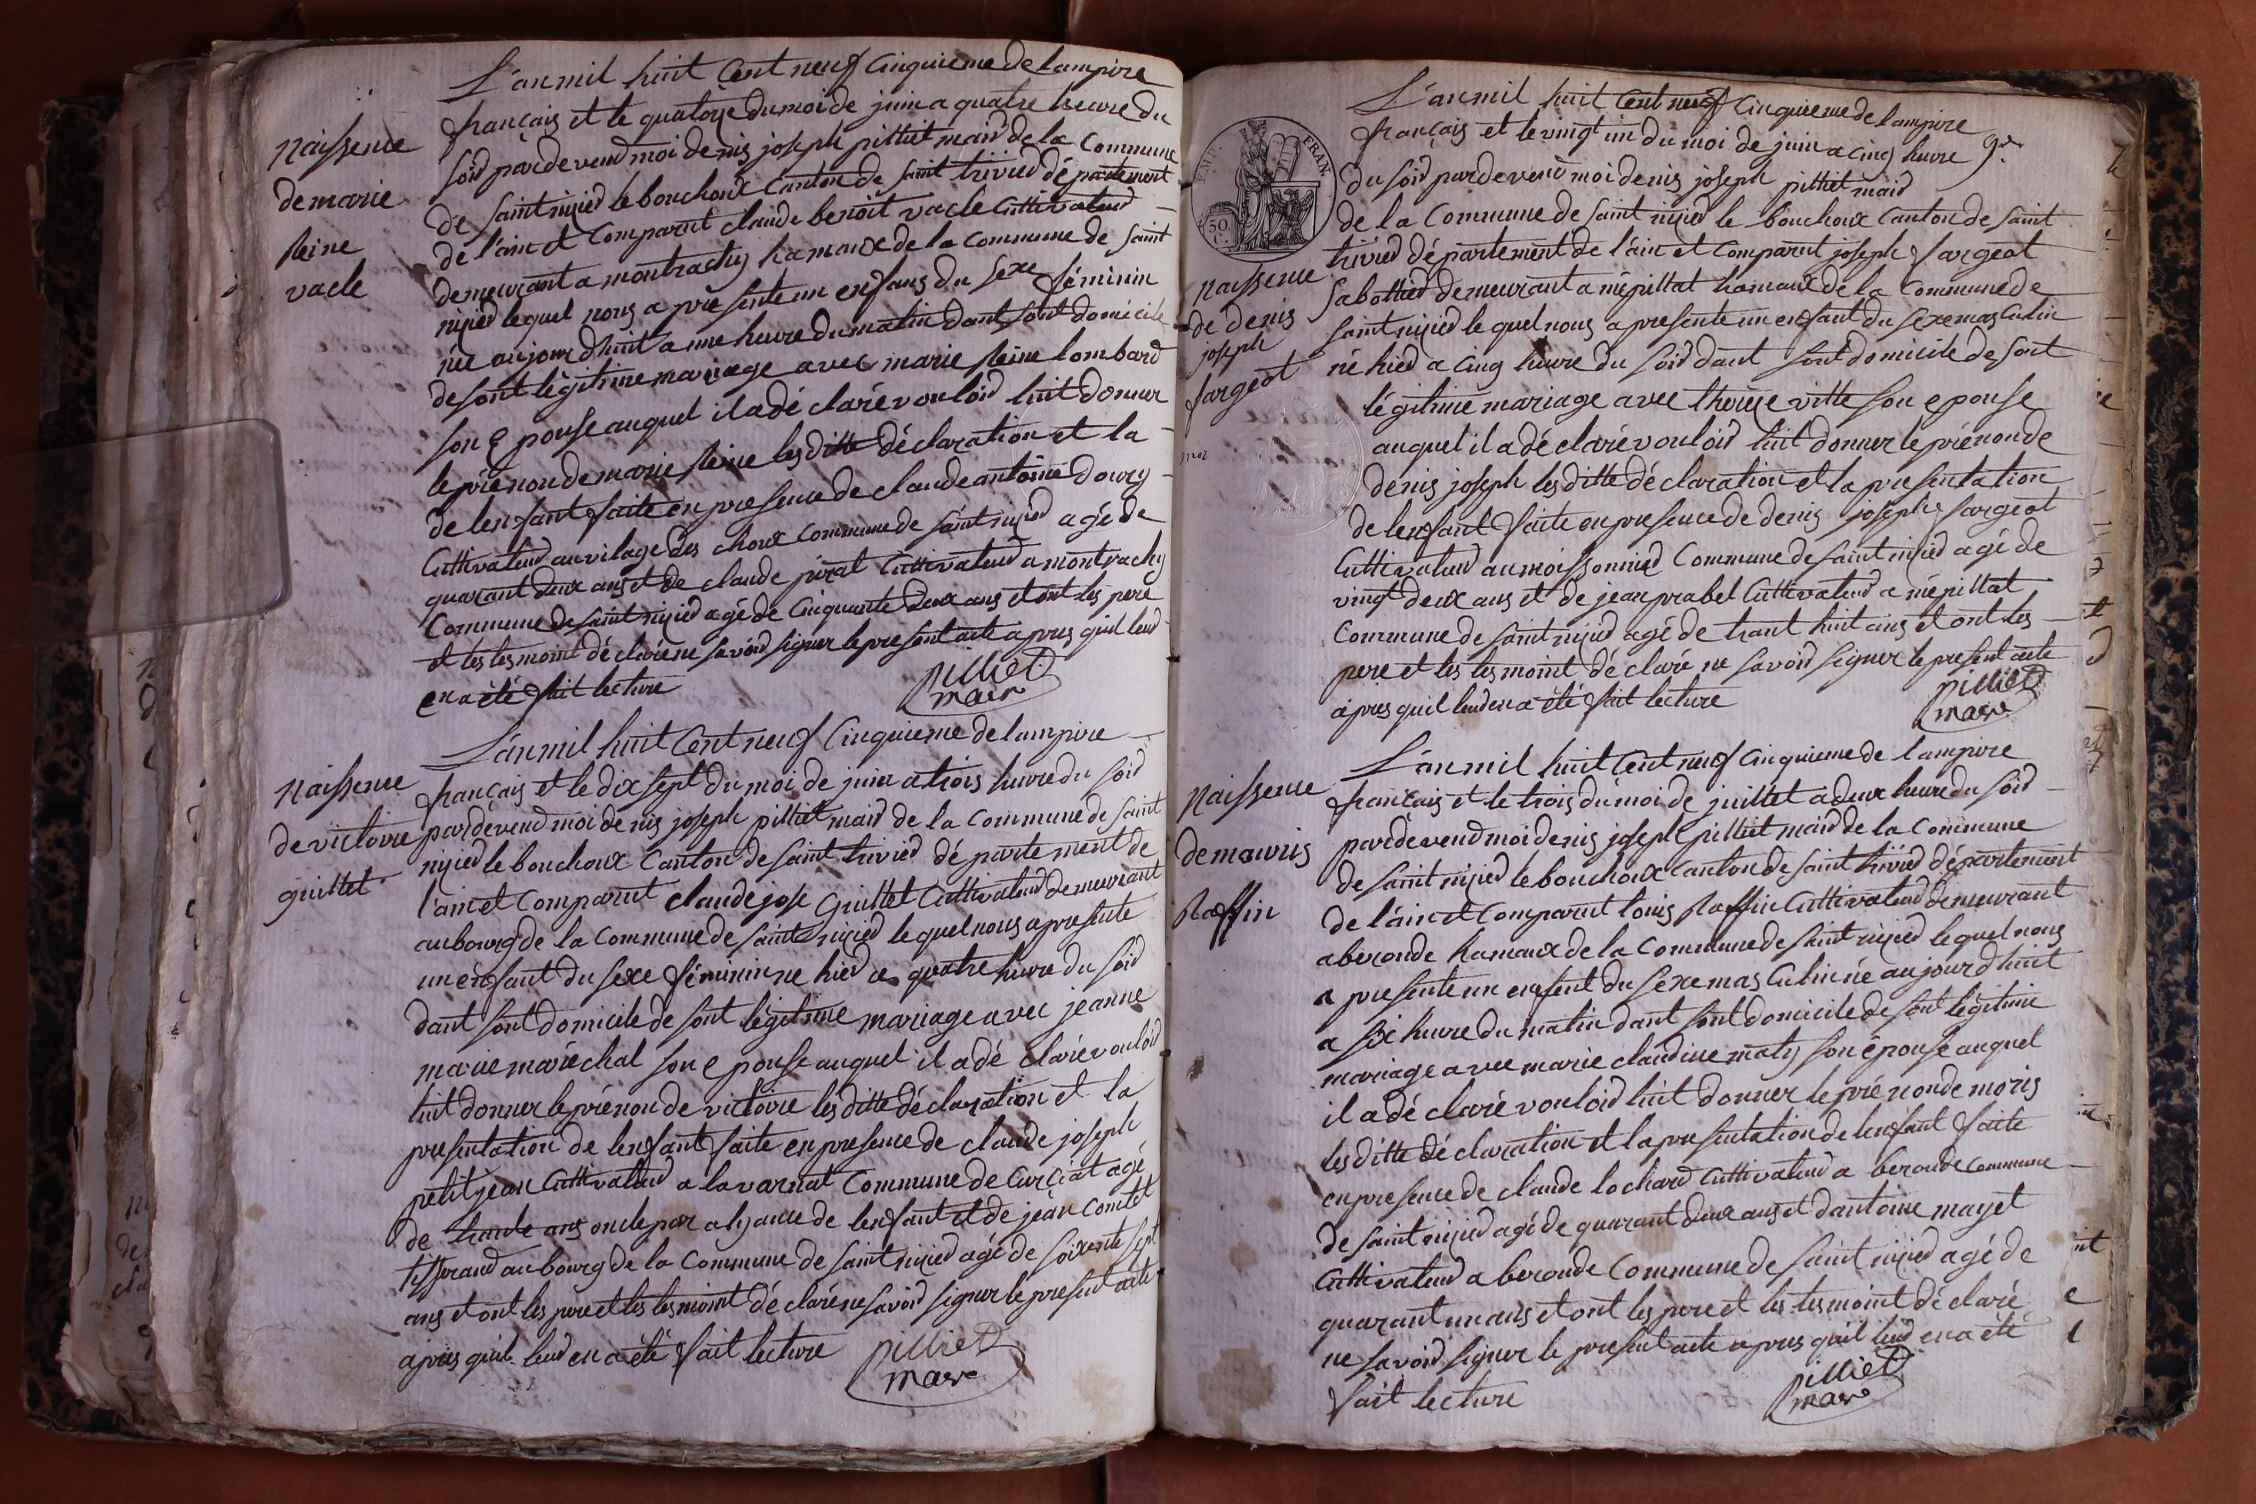 L'an mil huit Cent neuf Cinquieme de lampire
français et le quatorze du moi de juin a quatre heure du
Naissence
soir pardevend moi denis joseph pilliet mair de la Commune
de marie
de saint nijied le bouchoux Canton de saint trivied département
Reine
de l'ain et Comparut claude benoit vacle Cultivateud
vacle
demeurant a montrachy hamaux de la Commune de saint
nijied lequel nous a présente un enfans du sexe féminin
née aujourdhuit a une heure du matin dant sont domicile
de sont légitime mariage avec marie Reine lombard
son epouse auquel il a déclaré vouloid luit donner
le prénon de marie Reine les ditte déclaration et la
de lenfant faite en presence de claude antoine douvry
Cultivateud au vilage des choux Commune de saint nijied agé de
quarant deux ans et de claude pirat Cultivateud a montrachy
Commune de saint nijied agé de Cinquante deux ans et ont les pere
et les tesmoint déclaré ne savoid signer le present acte apres quil leud
en a été fait lecture
pilliet
mair
L'an mil huit Cent neuf Cinquieme de lampire
Naissence
français et le dix sept du moi de juin a trois heure du soid
de victoire
pardevend moi denis joseph pilliet maid de la Commune de saint
guillet
nijied le bouchoux Canton de saint trivied département de
l'ain et Comparut claude jose Guillet Cultivateud demeurant
au bourg de la Commune de saint nijied lequel nous a presente
un enfant du sexe féminin ne hied a quatre heure du soid
dant sont domicile de sont légitime mariage avec jeanne
marie maréchal son epouse auquel il a déclaré vouloid
luit donner le prénon de victoire les ditte déclaration et la
presentation de lenfant faite en presence de claude joseph
petitjean Cultivateud a lavarnat Commune de Curciat agé
de trante ans oncle par alyance de lenfant et de jean Comtet
tisserand au bourg de la Commune de saint nijied agé de soixente sept
ans et ont les pere et les tesmoint déclaré ne savoid signer le present acte
apres quil leud en a été fait lecture
pilliet
mair
L'an mil huit Cent neuf Cinquieme de lampire
français et le vingt un du moi de juin a cinq heure
du soid pardevend moi denis joseph pilliet maid
de la Commune de saint nijied le bouchoux Canton de saint
trivied département de l'ain et Comparut joseph fargeot
Naissence
sabottied demeurant a mépillat hamaux de la Commune de
de denis
saint nijied lequel nous a presente un enfant du sexe masculin
joseph
né hied a cinq heure du soid dant sont domicile de sont
fargeot
légitime mariage avec therese vitte son epouse
auquel il a déclaré vouloid luit donner le prénon de
denis joseph les ditte déclaration et la presentation
de lenfant faite en presence de denis joseph fargeot
Cultivateud au moissonnied Commune de saint nijied agé de
vingt deux ans et de jean prabel Cultivateud a mépillat
Commune de saint nijied agé de trant huit ans et ont les
pere et les tesmoint déclaré ne savoid signer le present acte
apres quil leud en a été fait lecture
pilliet
maire
L'an mil huit Cent neuf Cinquieme de lampire
Naissence
français et le trois du moi de juillet a deux heure du soid
pardevend moi denis joseph pilliet maid de la Commune
de mauris
de saint nijied le bouchoux Canton de saint trivied département
Raffin
de l'ain et Comparut louis Raffin Cultivateud demeurant
a beronde hamaux de la Commune de saint nijied lequel nous
a presente un enfent du sexe masculin né aujourdhuit
a six heure du matin dant sont domicile de sont légitime
mariage avec marie claudine maty son épouse auquel
il a déclaré vouloid luit donner le prénon de moris
les ditte déclaration et la presentation de lenfant faite
en presence de claude lochard Cultivateud a beronde Commune
de saint nijied agé de quarant deux ans et dantoine mayet
Cultivateud a beronde Commune de saint nijied agé de
quarant un ans et ont les pere et les tesmoint déclaré
ne savoid signer le present acte apres quil leud en a été
fait lecture
pilliet
maire
FRAN.
50
C.